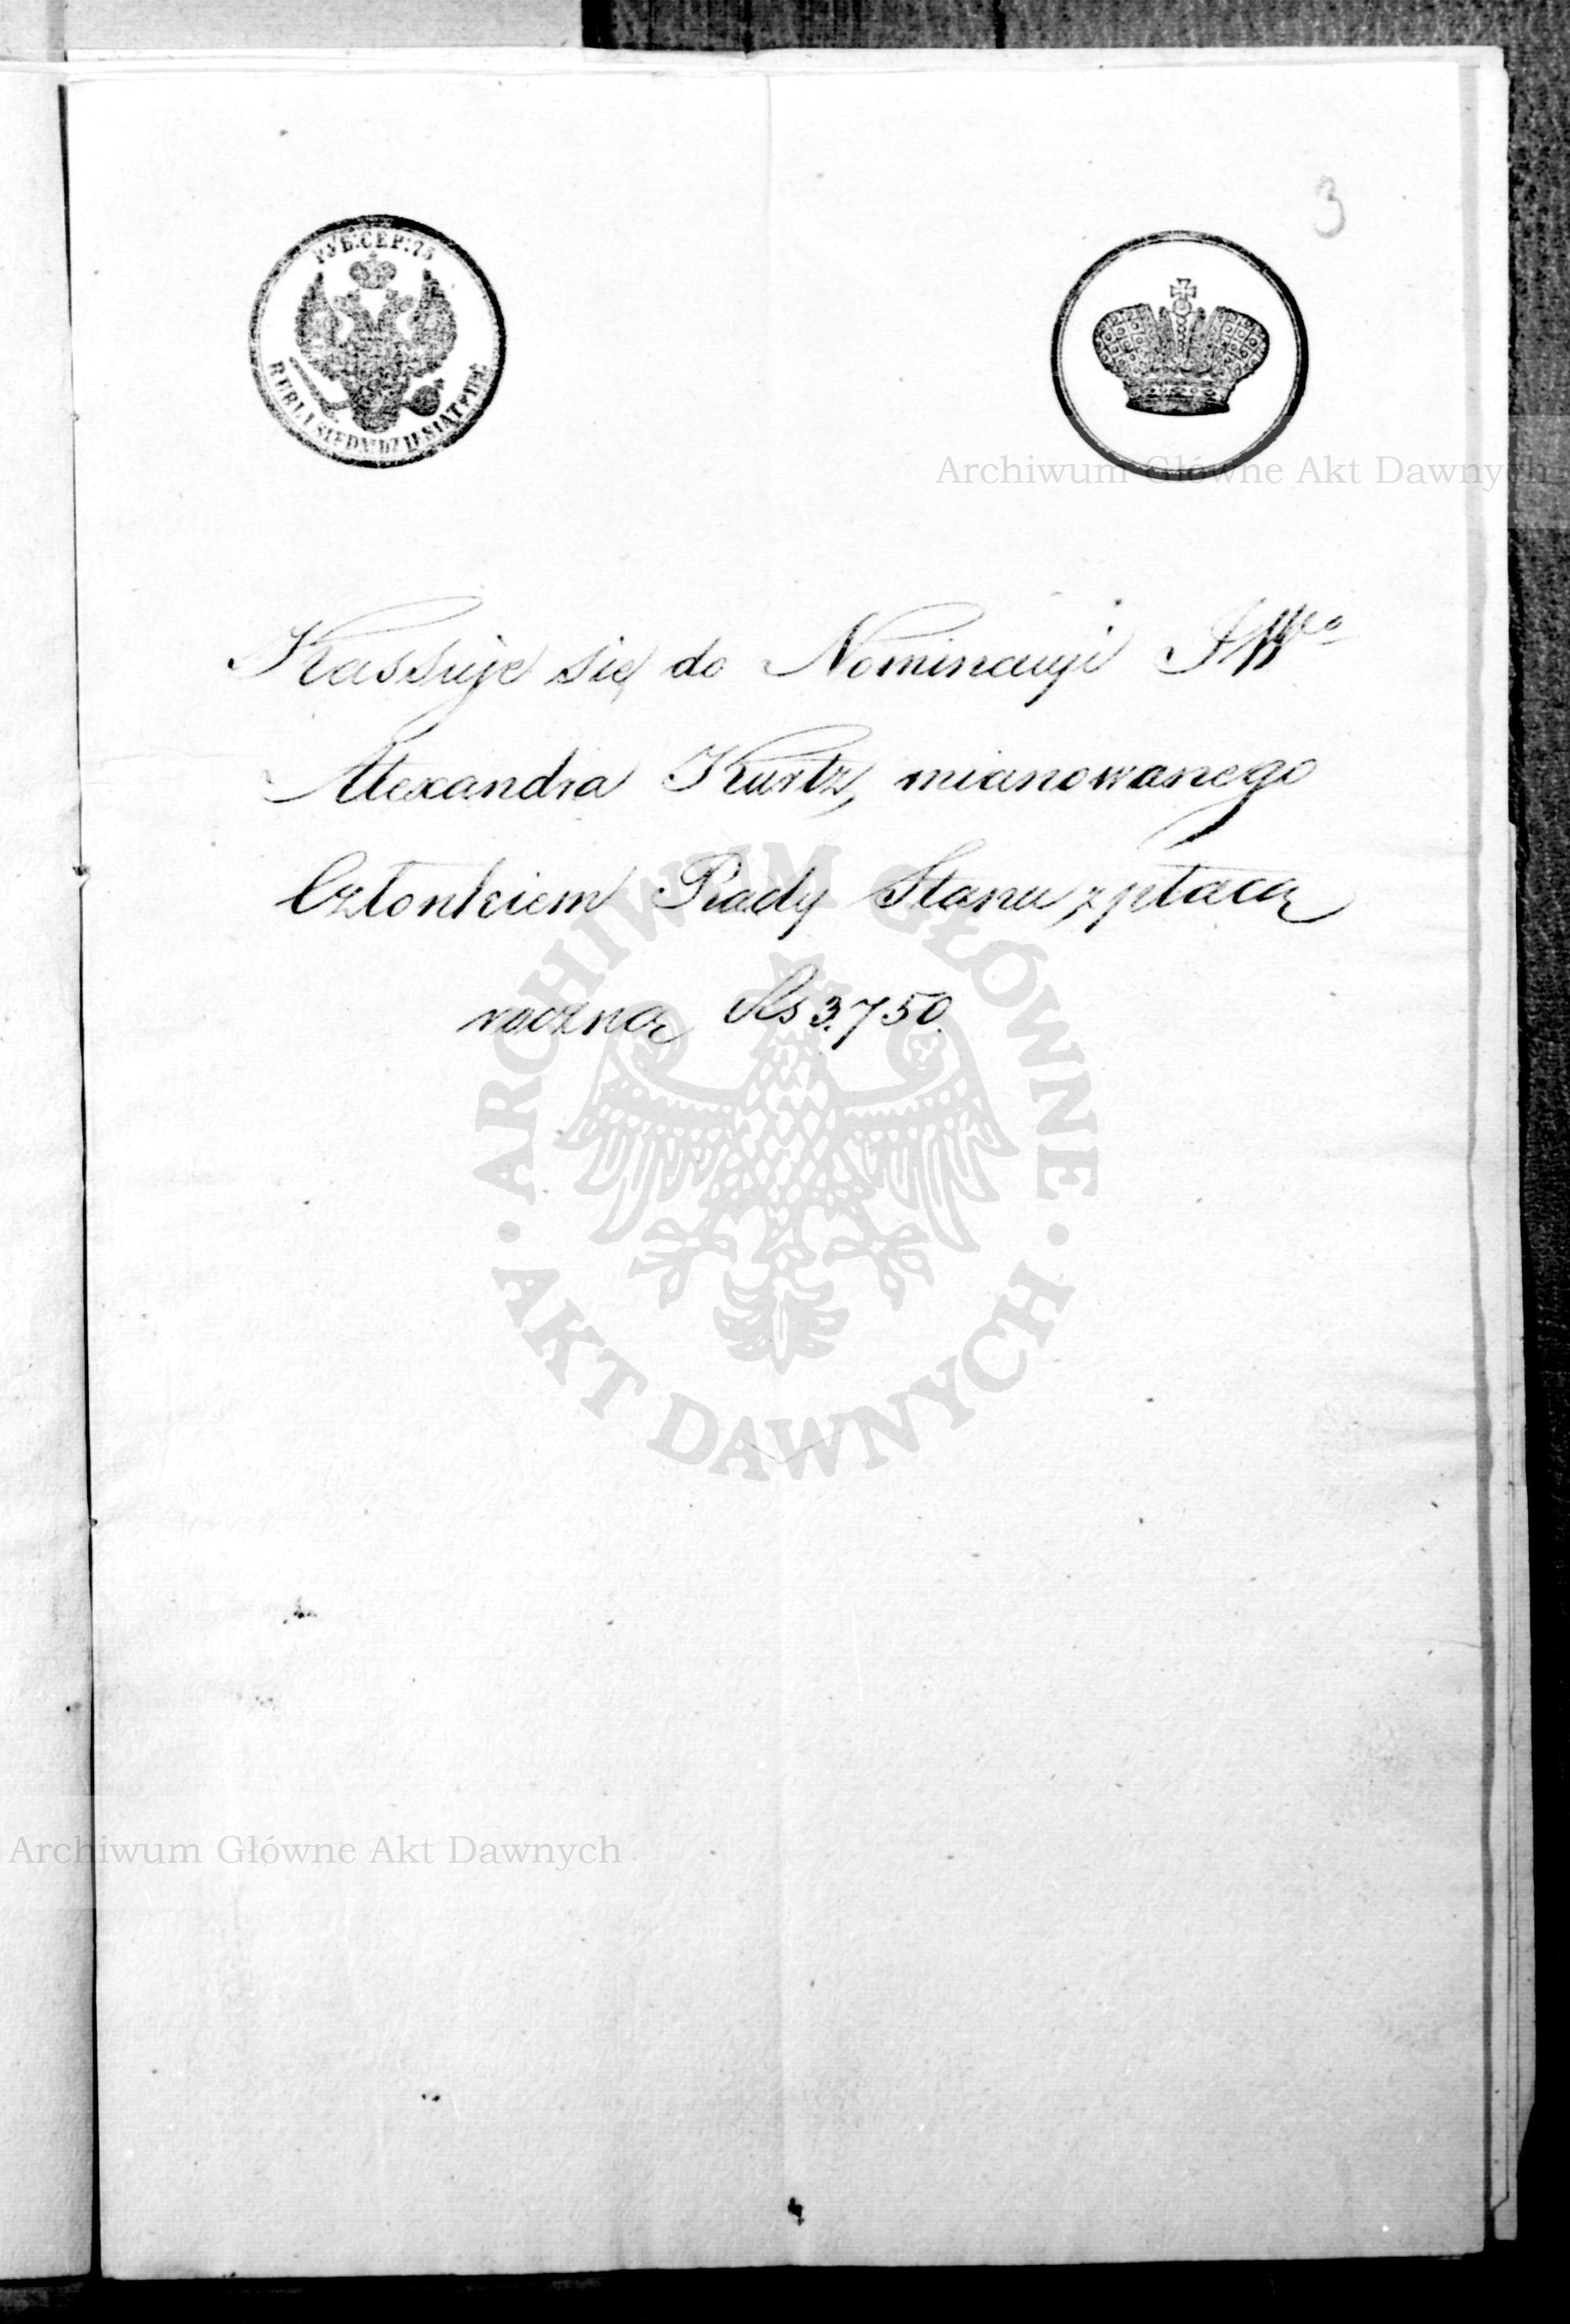 3
РУБ: СЕР: 75
RUBLI SIEDMDZIESIAT PIĘĆ
Archiwum Główne Akt Dawnych
Kassuje się do Nominacyi JWo
Alexandra Kurtz, mianowanego
Członkiem Rady Stanu z płacą
roczną Rs 3.750.
ARCHIWUM GŁÓWNE
AKT DAWNYCH
Archiwum Główne Akt Dawnych